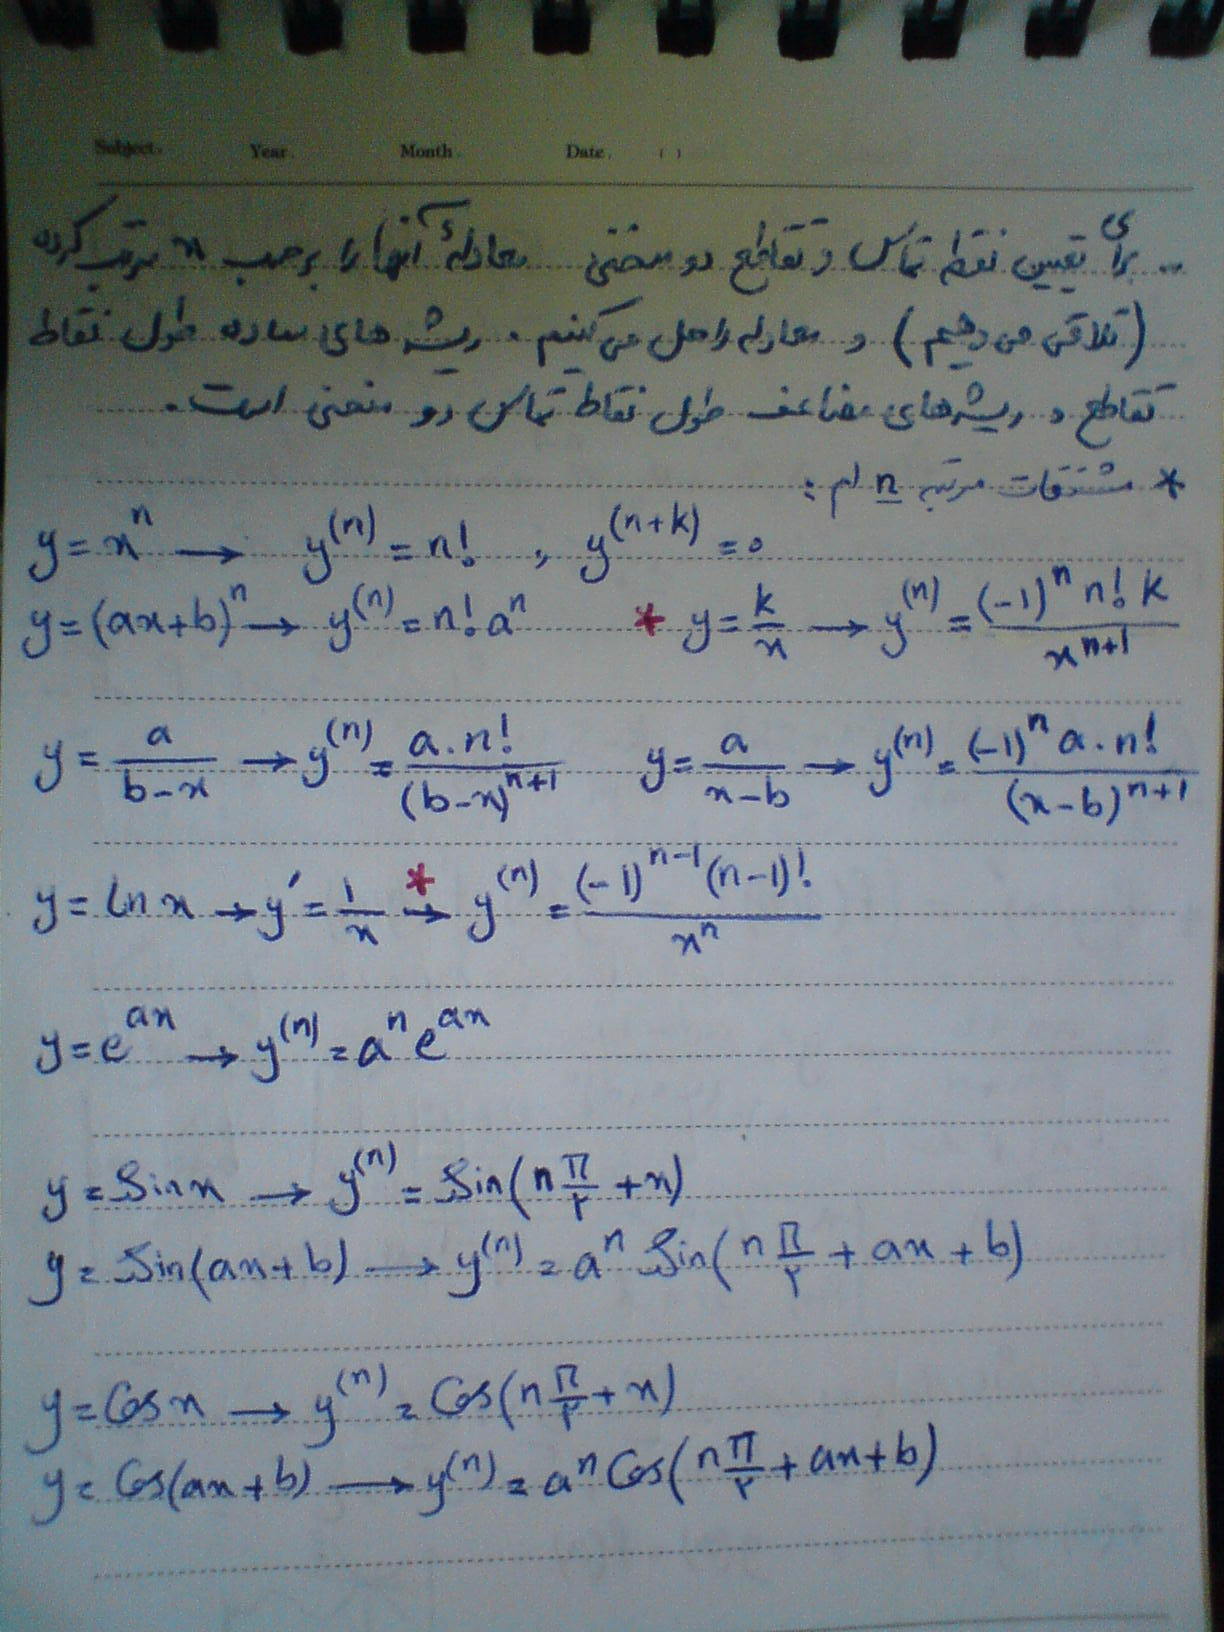 Subject. Year. Month. Date. ( )
.. برای تعیین نقطه تماس و تقاطع دو منحنی معادلهٔ آنها را برحسب x مرتب کرده
(تلاقی می دهیم) و معادله را حل می کنیم. ریشه های ساده طول نقاط
تقاطع و ریشه های مضاعف طول نقاط تماس دو منحنی است.
* مشتقات مرتبه n ام :
y = x^n → y^(n) = n! , y^(n+k) = 0
y = (ax+b)^n → y^(n) = n! a^n * y = k/x → y^(n) = (-1)^n n! k / x^(n+1)
y = a/(b-x) → y^(n) = a.n!/(b-x)^(n+1) y = a/(x-b) → y^(n) = (-1)^n a.n!/(x-b)^(n+1)
y = Ln x → y' = 1/x *→ y^(n) = (-1)^(n-1) (n-1)! / x^n
y = e^(ax) → y^(n) = a^n e^(ax)
y = Sin x → y^(n) = Sin(n π/۲ + x)
y = Sin(ax+b) → y^(n) = a^n Sin(n π/۲ + ax + b)
y = Cos x → y^(n) = Cos(n π/۲ + x)
y = Cos(ax+b) → y^(n) = a^n Cos(n π/۲ + ax+b)